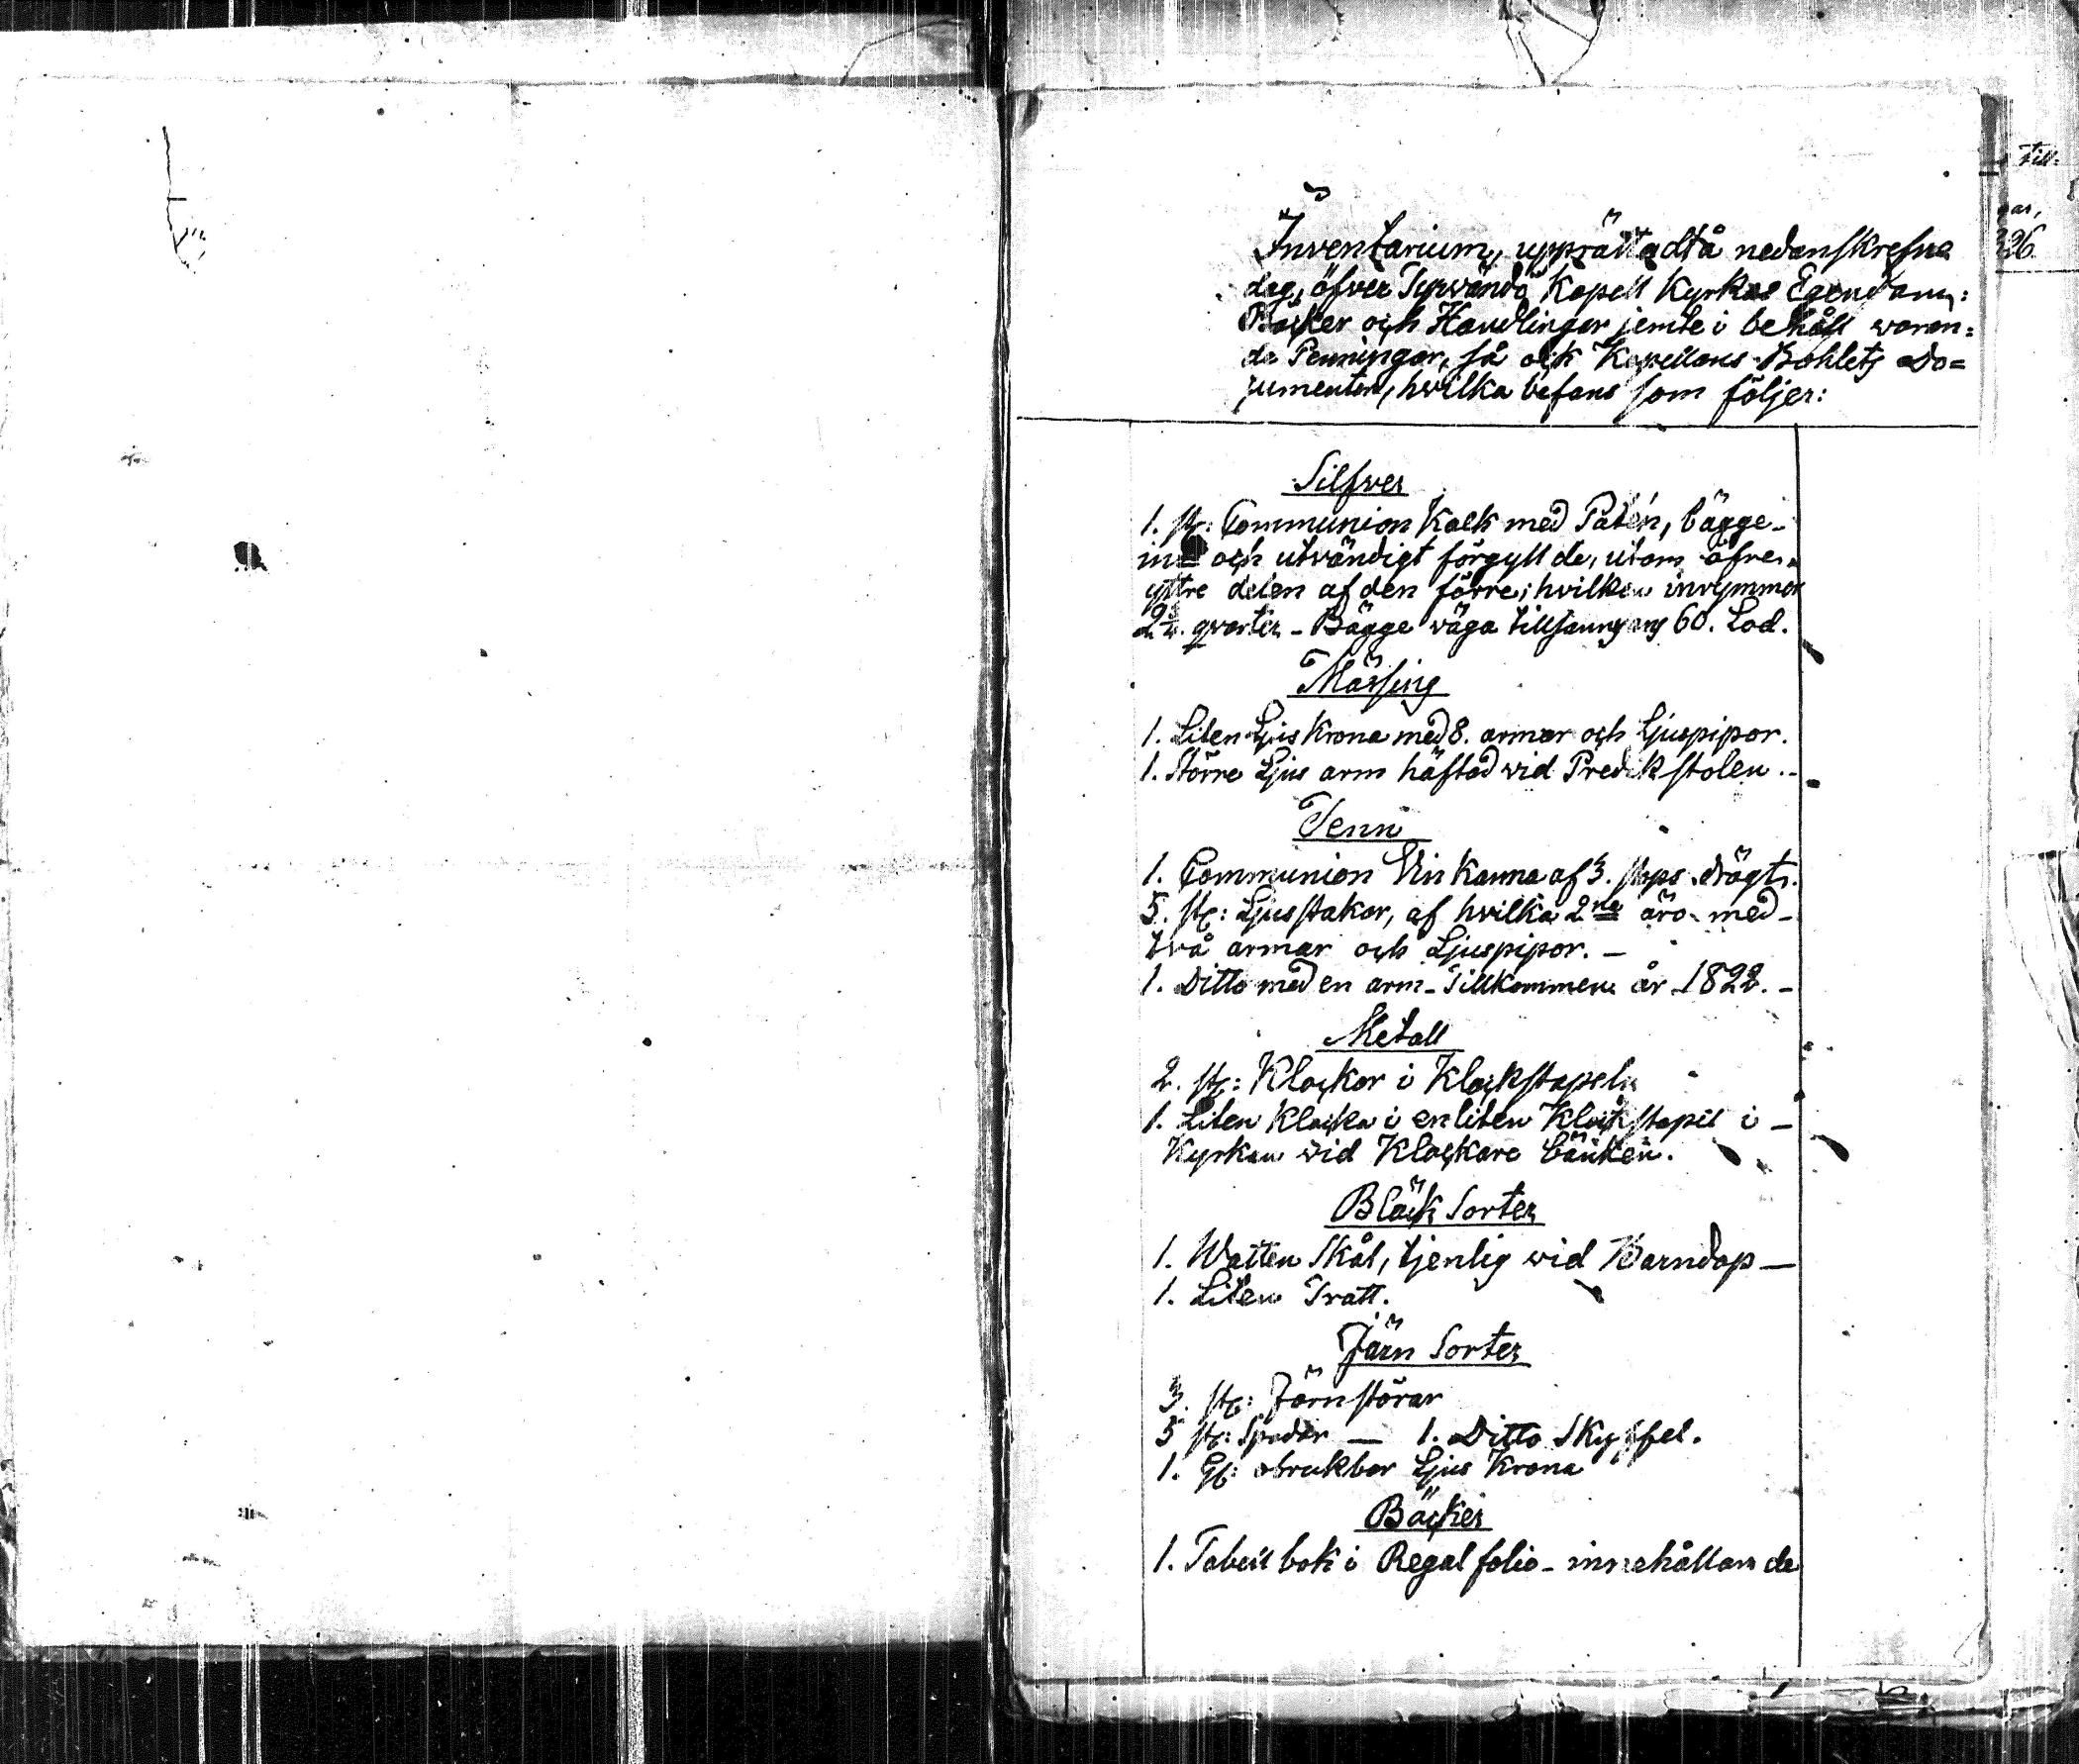 Till:
gar,
326
Inventarium, upprättadt å nedanskrefne
dag, öfver Tyrvändö Kapell Kyrkas Egendom:
Böcker och Handlingar jemte i behåll waran:
de Penningar, så ock Kapellans Bohlets Do=
cumenter, hvilka befans som följer:
Silfver
1. st: Communion Kalk med Patén, bägge-
in= och utvändigt förgyllde, utom öfre-
yttre delen af den förre; hvilken inrymmer
2½ qvarter - Bägge väga tillsammans 60. Lod.
Mässing
1. Liten Ljus Krona med 8. armar och Ljuspipor.
1. Större Ljus arm häftad wid Predikstolen.-
Tenn
1. Communion Vin Kanna af 3. stops drägt.
5. st: Ljusstakar, af hvilka 2ne äro med-
två armar och Ljuspipor. -
1. Ditto med en arm - Tillkommen år 1822. -
Metall
2. st: Klockor i Klockstapeln
1. Liten Klocka i en liten Klockstapel i -
Kyrkan wid Klockare bänken.
Bläck Sorter
1. Watten Skål, tjenlig wid Barndop -
1. Liten Tratt.
Järn Sorter
3. st: Järnstörar
5 st: Spadar - 1. Ditto Skyffel.
1. obrukbar Ljus Krona
Böcker
1. Tabell bok i Regal folio - innehållande